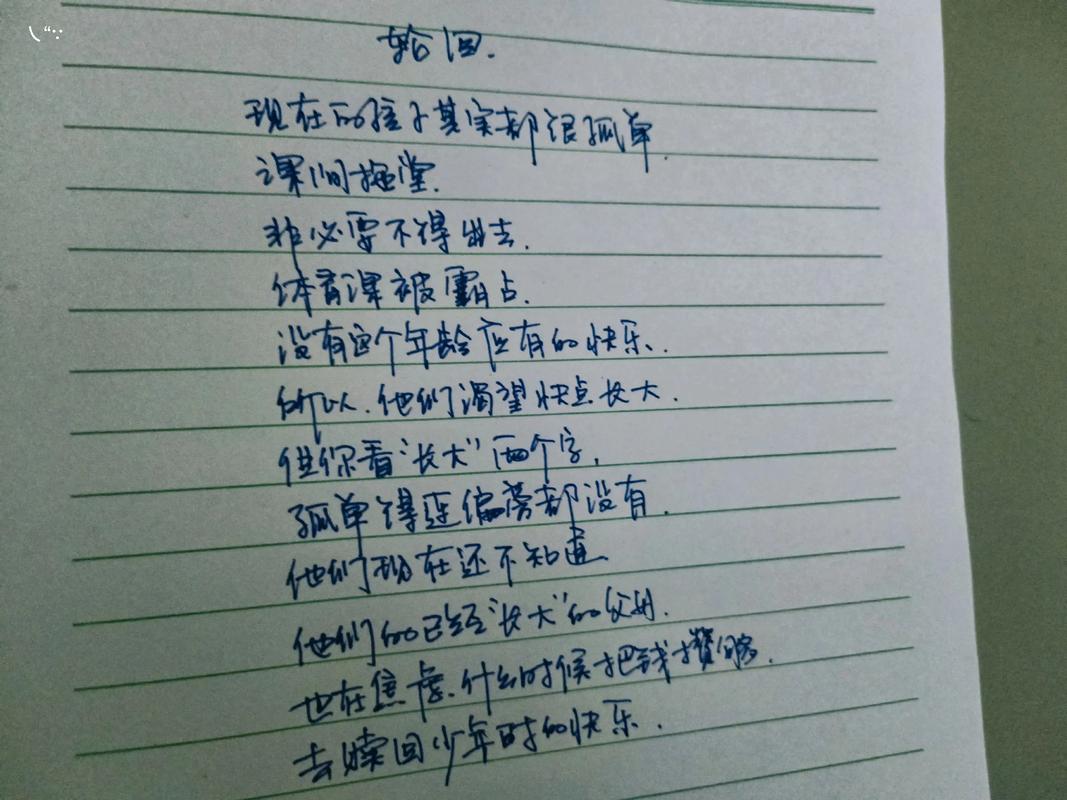 轮回.
现在的孩子其实都很孤单.
课间拖堂.
非必要不得出去.
体育课被霸占.
没有这个年龄应有的快乐.
所以.他们渴望快点长大.
但你看“长大”两个字,
孤单得连偏旁都没有.
他们现在还不知道
他们的已经“长大”的父母.
也在焦虑.什么时候把钱攒够.
去赎回少年时的快乐.